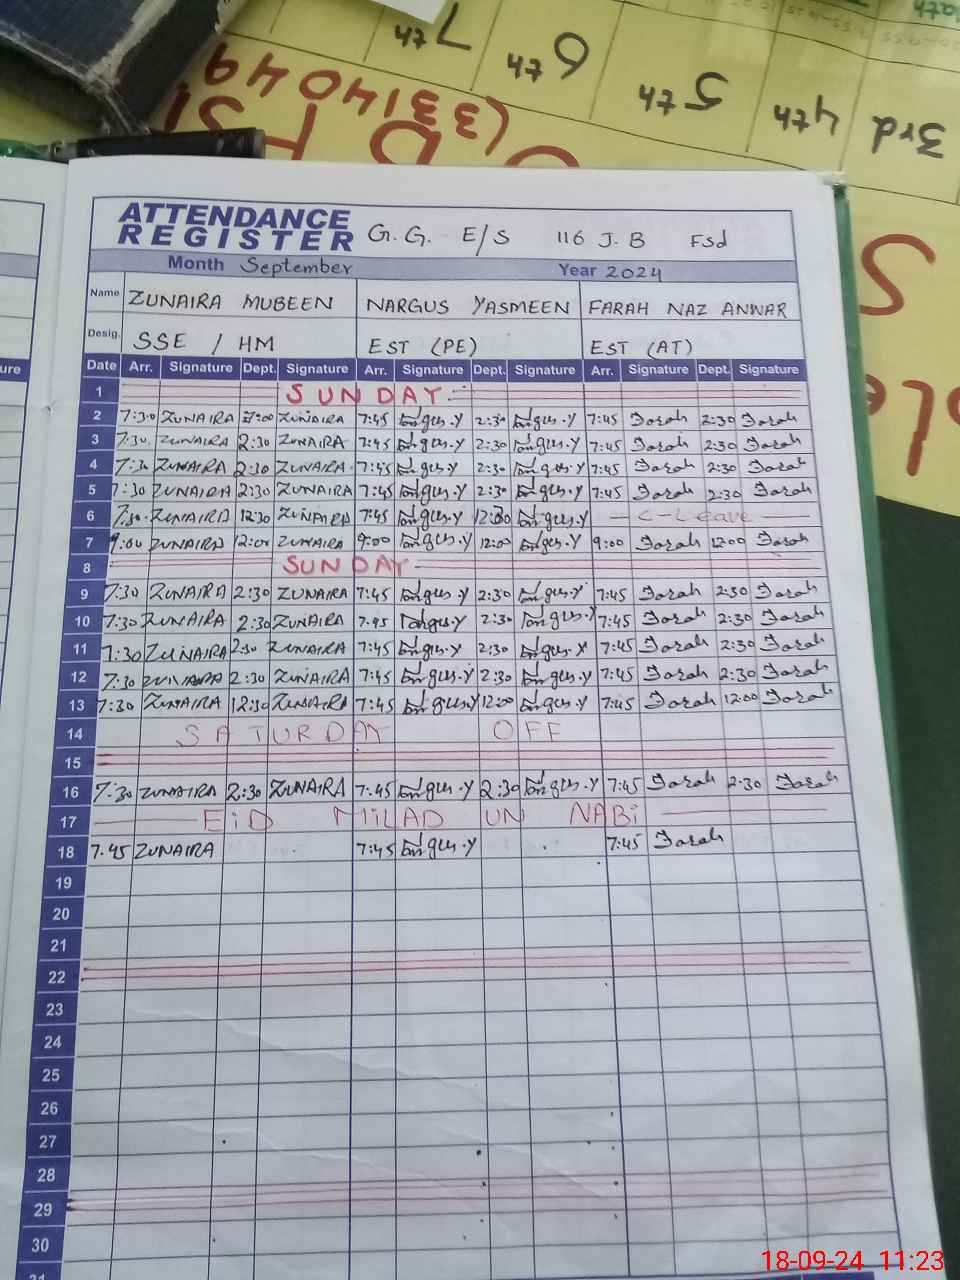 7th 6th 5th 4th 3rd
(3314049
ATTENDANCE
REGISTER G.G. E/S 116 J.B Fsd
Month September Year 2024
Name ZUNAIRA MUBEEN NARGUS YASMEEN FARAH NAZ ANWAR
Desig. SSE / HM EST (PE) EST (AT)
Date Arr. Signature Dept. Signature Arr. Signature Dept. Signature Arr. Signature Dept. Signature
1 SUNDAY
2 7:30 ZUNAIRA ZUNAIRA 7:45 2:30 7:45 Farah 2:30 Farah
3 7:30 ZUNAIRA 2:30 ZUNAIRA 7:45 2:30 7:45 Farah 2:30 Farah
4 7:30 ZUNAIRA 2:30 ZUNAIRA 7:45 2:30 7:45 Farah 2:30 Farah
5 7:30 ZUNAIRA 2:30 ZUNAIRA 7:45 2:30 7:45 Farah 2:30 Farah
6 7:30 ZUNAIRA 12:30 ZUNAIRA 7:45 12:30 C-Leave
7 9:00 ZUNAIRA 12:00 ZUNAIRA 9:00 12:00 9:00 Farah 12:00 Farah
8 SUNDAY
9 7:30 ZUNAIRA 2:30 ZUNAIRA 7:45 2:30 7:45 Farah 2:30 Farah
10 7:30 ZUNAIRA 2:30 ZUNAIRA 7.45 2:30 7:45 Farah 2:30 Farah
11 7:30 ZUNAIRA 2:30 ZUNAIRA 7:45 2:30 7:45 Farah 2:30 Farah
12 7:30 ZUNAIRA 2:30 ZUNAIRA 7:45 2:30 7:45 Farah 2:30 Farah
13 7:30 ZUNAIRA 12:30 ZUNAIRA 7:45 12:00 7:45 Farah 12:00 Farah
14 SATURDAY OFF
15
16 7:30 ZUNAIRA 2:30 ZUNAIRA 7:45 2:30 7:45 Farah 2:30 Farah
17 EID MILAD UN NABI
18 7.45 ZUNAIRA 7:45 7:45 Farah
19
20
21
22
23
24
25
26
27
28
29
30
18-09-24 11:23